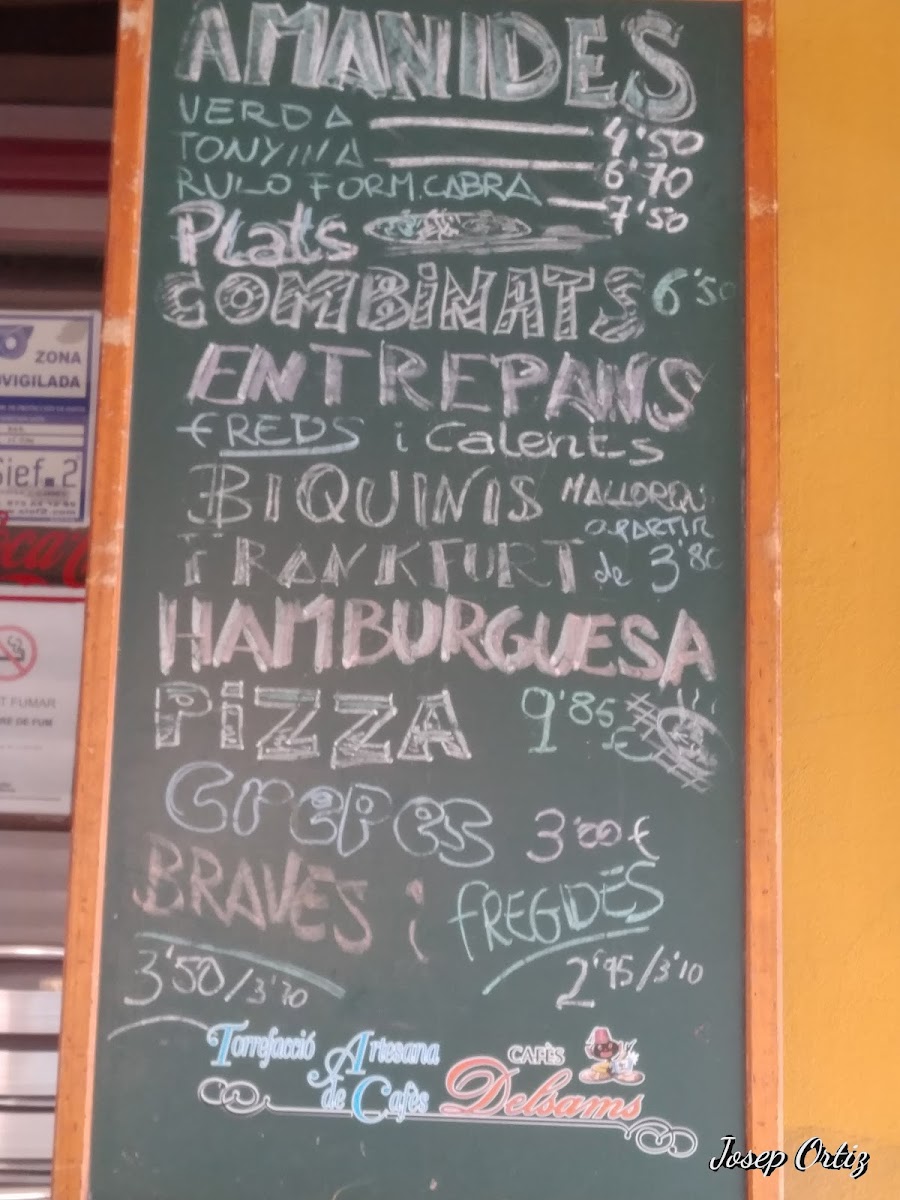 AMANIDES
VERDA 4'50
TONYINA 6'70
RULO FORM. CABRA 7'50
Plats
COMBINATS 6'50
ENTREPANS
FREDS i Calents
BIQUINIS MALLORQUI
a PARTIR
FRANKFURT de 3'80
HAMBURGUESA
PiZZA 9'85 €
Crepes 3'00 €
BRAVES i FREGIDES
3'50/3'70 2'95/3'10
Torrefacció Artesana
de Cafès
CAFÈS
Delsams
ZONA
VIGILADA
Sief.2
T FUMAR
RE DE FUM
Josep Ortiz